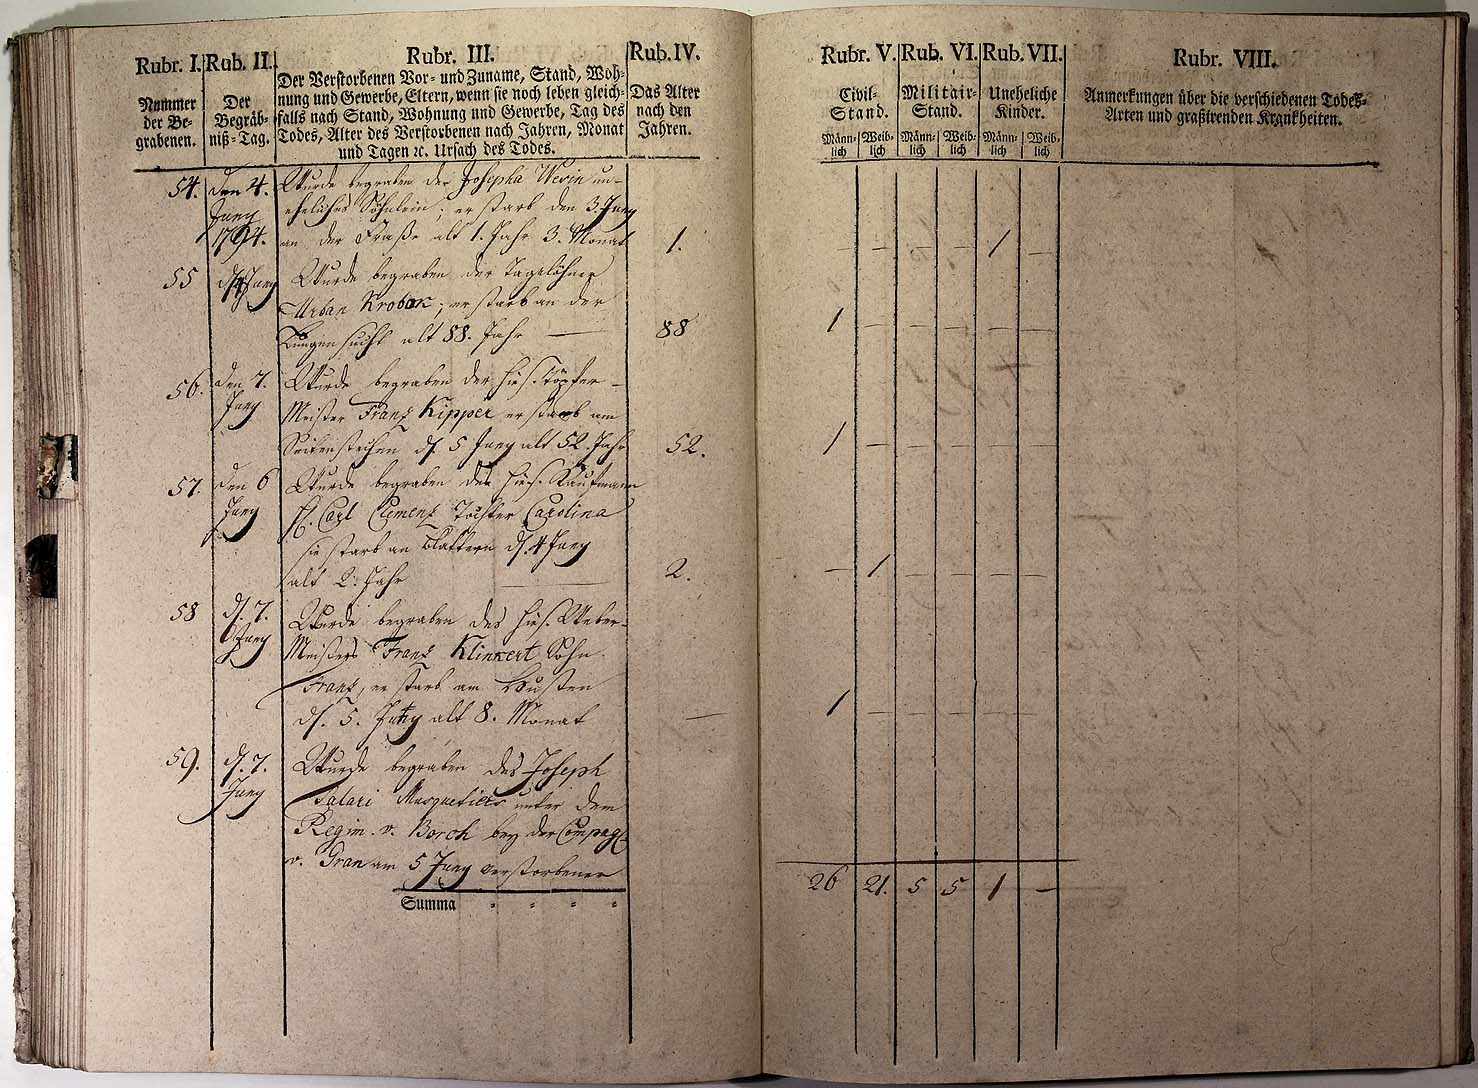 Rubr. I.
Nummer
der Be-
grabenen.
Rub. II.
Der
Begräb-
niß-Tag.
Rubr. III.
Der Verstorbenen Vor- und Zuname, Stand, Woh-
nung und Gewerbe, Eltern, wenn sie noch leben gleich-
falls nach Stand, Wohnung und Gewerbe, Tag des
Todes, Alter des Verstorbenen nach Jahren, Monat
und Tagen ꝛc. Ursach des Todes.
Rub. IV.
Das Alter
nach den
Jahren.
Rubr. V.
Civil-
Stand.
Männ-
lich
Weib-
lich
Rub. VI.
Militair-
Stand.
Männ-
lich
Weib-
lich
Rub. VII.
Uneheliche
Kinder.
Männ-
lich
Weib-
lich
Rubr. VIII.
Anmerkungen über die verschiedenen Todes-
Arten und graßirenden Krankheiten.
54. den 4. Wurde begraben der Josepha Werin un-
Juny eheliches Söhnlein; er starb den 3. Juny
1794. an der Fraße alt 1. Jahr 3. Monat 1. – – – – 1 –
55 d. 4 Juny Wurde begraben der Tagelöhner
Urban Kroban; er starb an der
Lungensucht alt 88. Jahr — 88 1 – – – – –
56. den 7. Wurde begraben der hies. Töpfer-
Juny Meister Franz Kipper er starb am
Seitenstechen d. 5 Juny alt 52. Jahr 52. 1 – – – – –
57. den 6 Wurde begraben des hies. Kaufmann
Juny H. Carl Clemenz Tochter Carolina
sie starb an Blattern d. 4 Juny
alt 2. Jahr — 2. – 1. – – – –
58 d. 7. Wurde begraben des hies. Weber-
Juny Meisters Franz Klinkert Sohn
Franz, er starb am Husten
d. 5. Juny alt 8. Monat — 1 – – – – –
59. d. 7. Wurde begraben des Joseph
Juny Salari Musquetiers unter dem
Regim. v. Borch bey der Compag.
v. Gran am 5 Juny verstorbener
Summa 26 21. 5 5 1 –